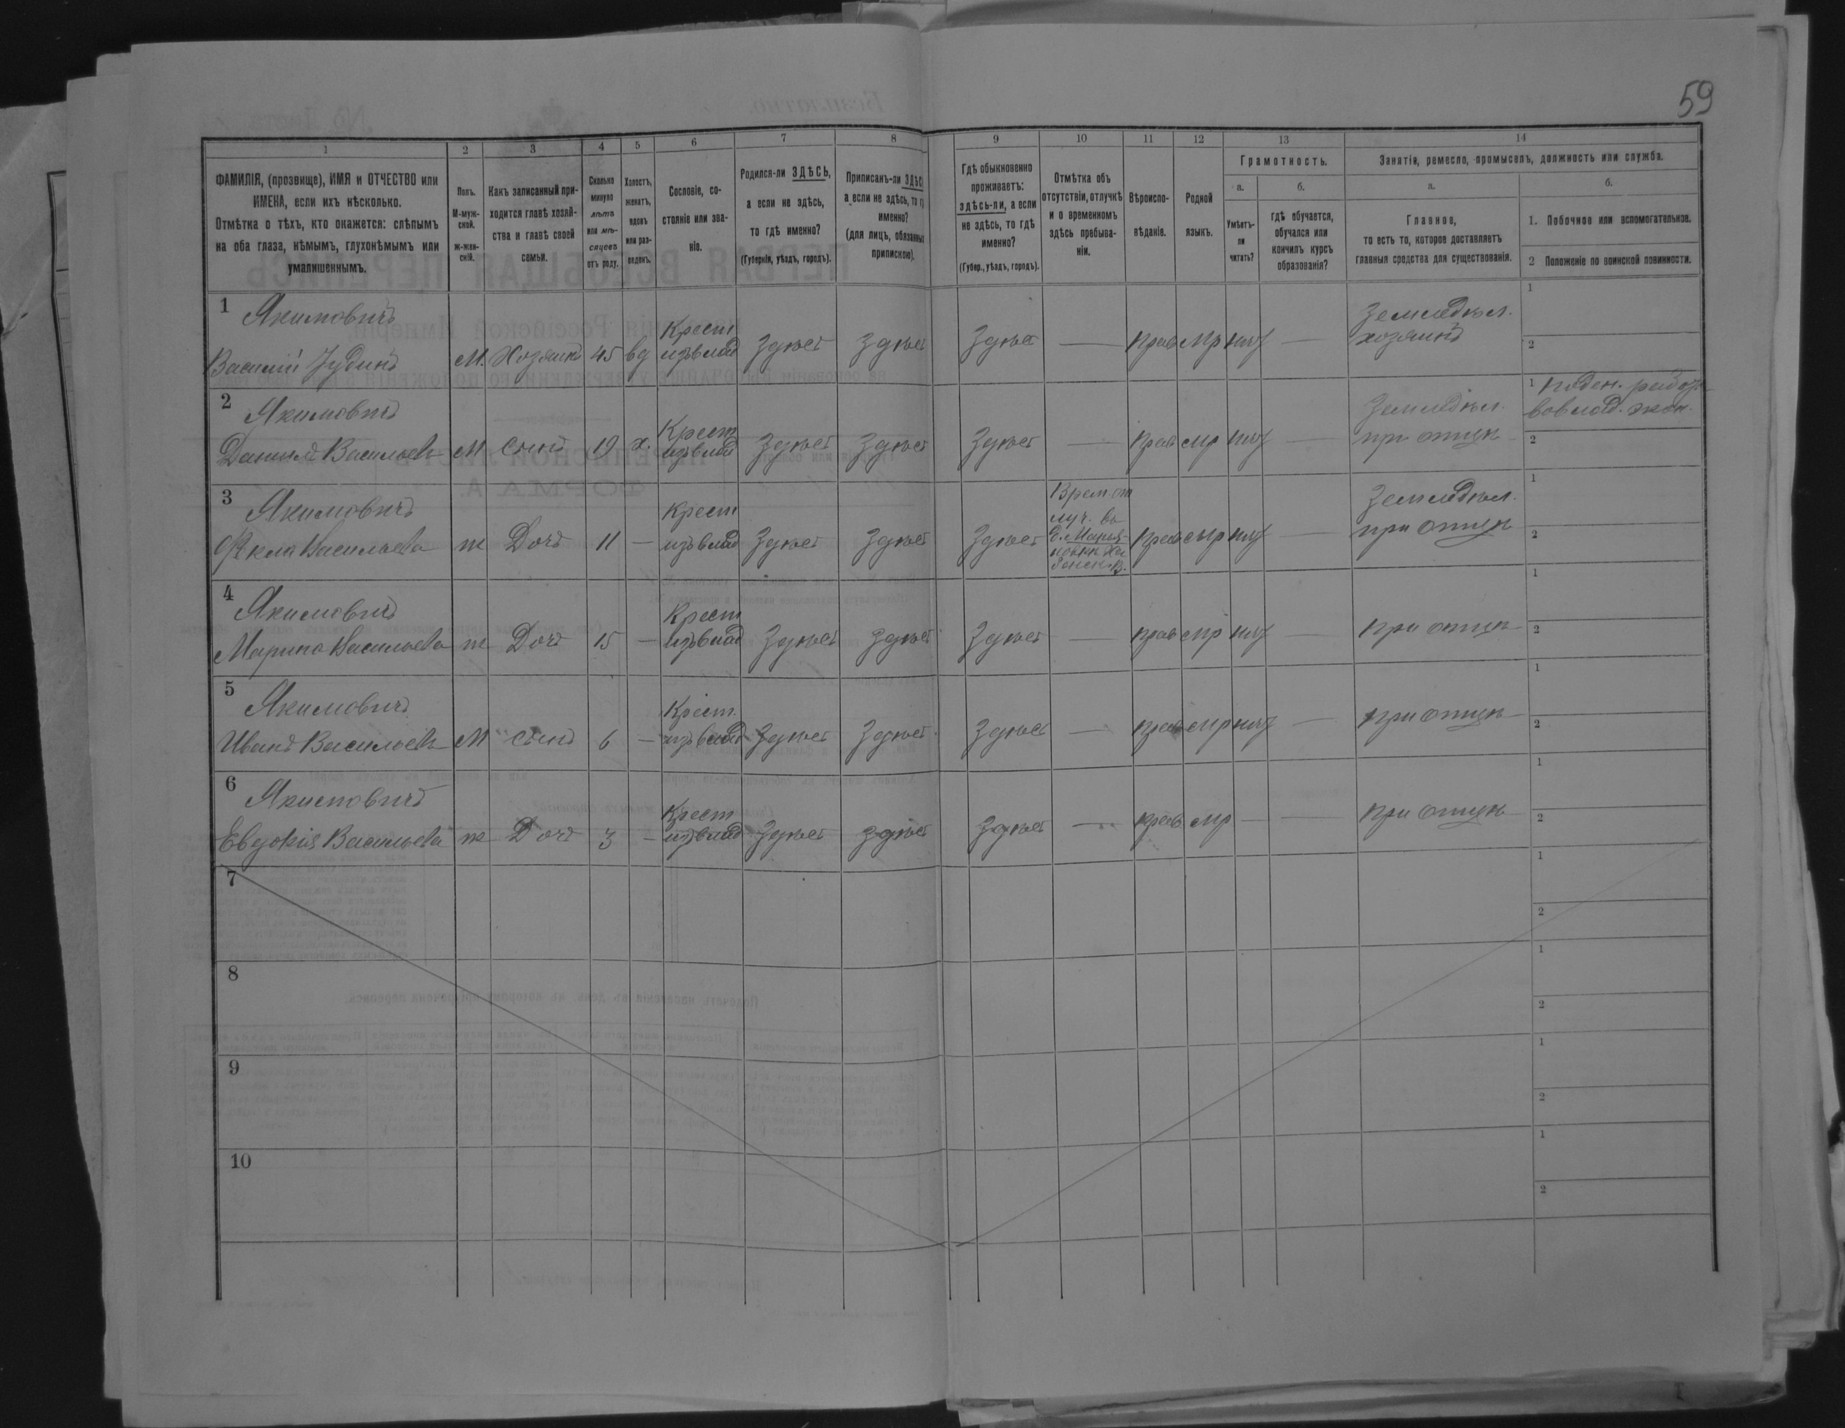 59
1
2
3
4
5
6
7
8
9
10
11
12
13
14
ФАМИЛІЯ, (прозвище), ИМЯ и ОТЧЕСТВО или
ИМЕНА, если ихъ нѣсколько.
Отмѣтка о тѣхъ, кто окажется: слѣпымъ
на оба глаза, нѣмымъ, глухонѣмымъ или
умалишеннымъ.
Полъ.
М-муж-
ской.
ж-жен-
скій.
Какъ записанный при-
ходится главѣ хозяй-
ства и главѣ своей
семьи.
Сколько
минуло
лѣтъ
или мѣ-
сяцевъ
отъ роду.
Холостъ,
женатъ,
вдовъ
или раз-
веденъ.
Сословіе, со-
стояніе или зва-
ніе.
Родился-ли ЗДѢСЬ,
а если не здѣсь,
то гдѣ именно?
(Губернія, уѣздъ, городъ).
Приписанъ-ли ЗДѢСЬ
а если не здѣсь, то гдѣ
именно?
(для лицъ, обязанныхъ
припискою).
Гдѣ обыкновенно
проживаетъ:
здѣсь-ли, а если
не здѣсь, то гдѣ
именно?
(Губер., уѣздъ, городъ).
Отмѣтка объ
отсутствіи, отлучкѣ
и о временномъ
здѣсь пребыва-
ніи.
Вѣроиспо-
вѣданіе.
Родной
языкъ.
Грамотность.
а.
б.
Умѣетъ-
ли
читать?
гдѣ обучается,
обучался или
кончилъ курсъ
образованія?
Занятія, ремесло, промыселъ, должность или служба.
а.
б.
Главное,
то есть то, которое доставляетъ
главныя средства для существованія.
1. Побочное или вспомогательное.
2 Положеніе по воинской повинности.
1 Якимовичъ
Василій Юдинъ М. Хозяинъ 45 вд Крест изъ влад Здѣсь Здѣсь Здѣсь — Прав мр нѣт — Земледѣл. хозяинъ
1
2
2 Якимовичъ
Даніилъ Васильев М сынъ 19 х. Крест изъ влад Здѣсь Здѣсь Здѣсь — Прав мр нѣт — Земледѣл. при отцѣ
1 поден. работ
2
3 Якимовичъ
Фекла Васильева ж Доч 11 — Крест изъ влад Здѣсь Здѣсь Здѣсь Врем. от луч. въ Прав мр нѣт — Земледѣл. при отцѣ
1
2
4 Якимовичъ
Марина Васильева ж Доч 15 — Крест изъ влад Здѣсь Здѣсь Здѣсь — Прав мр нѣт — при отцѣ
1
2
5 Якимовичъ
Иванъ Васильев М сынъ 6 — Крест изъ влад Здѣсь Здѣсь Здѣсь — Прав мр нѣт — при отцѣ
1
2
6 Якимовичъ
Евдокія Васильева ж Доч 3 — Крест изъ влад Здѣсь Здѣсь Здѣсь — Прав мр — — при отцѣ
1
2
7
1
2
8
1
2
9
1
2
10
1
2